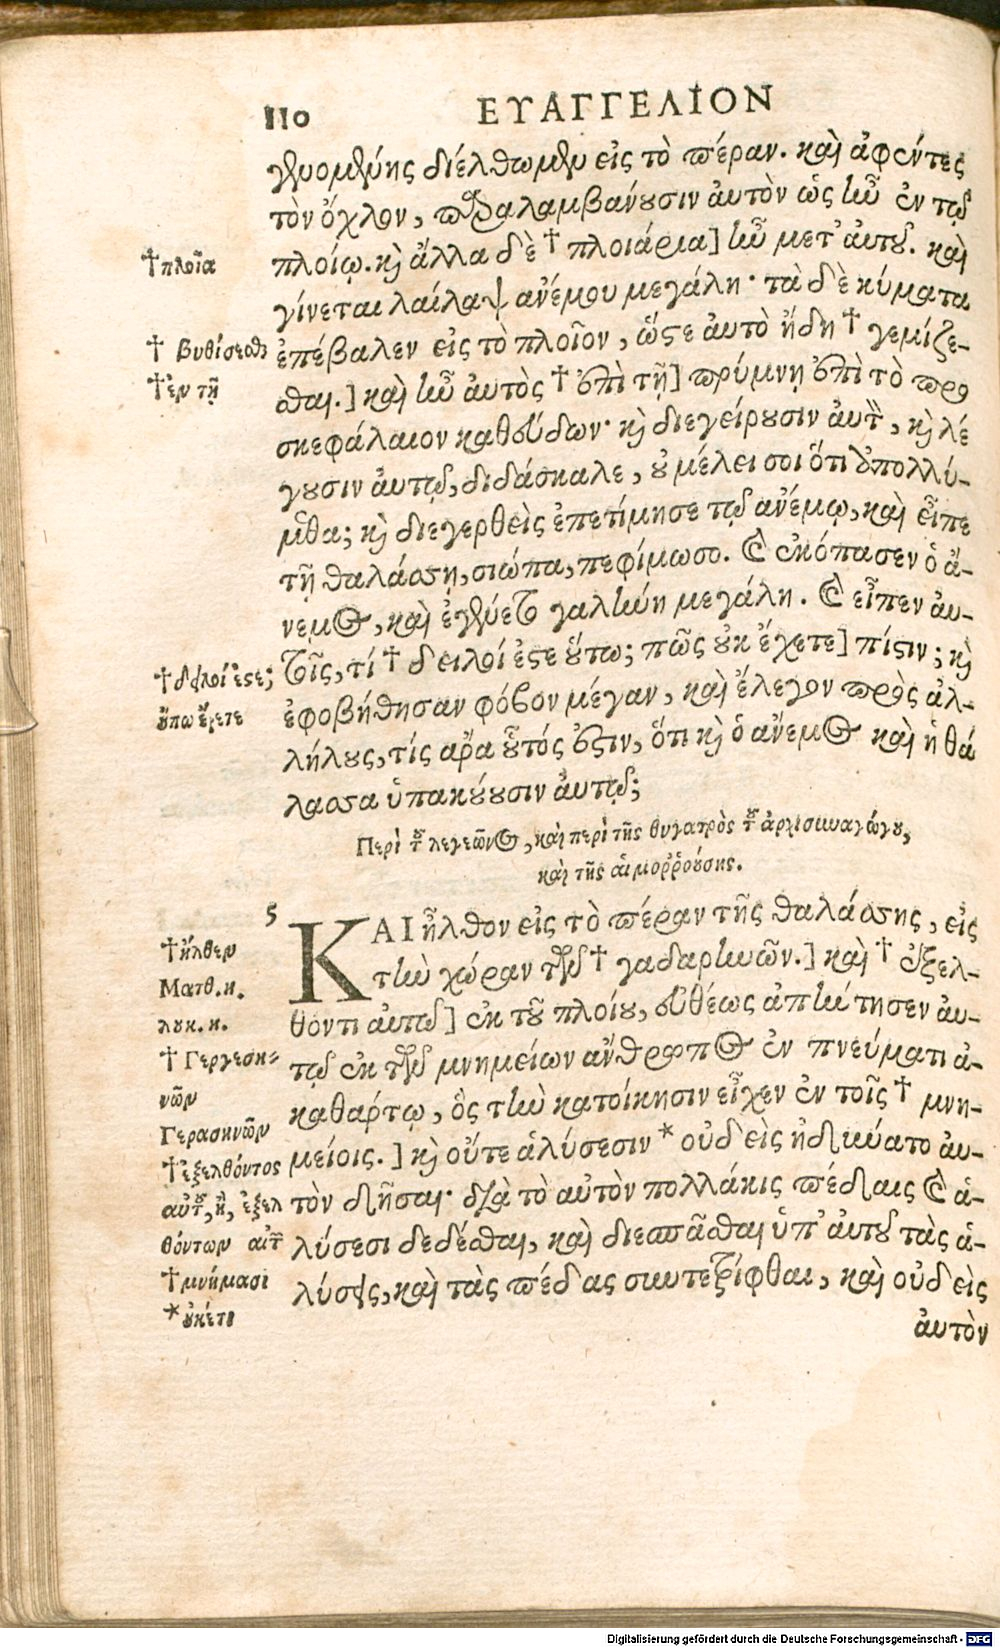 110 ΕΥΑΓΓΕΛΙΟΝ
γενομένης διέλθωμεν εἰς τὸ πέραν. καὶ ἀφέντες
τὸν ὄχλον, παραλαμβάνουσιν ἀυτὸν ὡς ἦν ἐν τῷ
†πλοῖα
πλοίῳ. κὶ ἄλλα δὲ † πλοιάρια] ἦν μετ' ἀυτοῦ. καὶ
γίνεται λαίλαψ ἀνέμου μεγάλη· τὰ δὲ κύματα
† βυθίσεσθαι
ἐπέβαλεν εἰς τὸ πλοῖον, ὥστε ἀυτὸ ἤδη † γεμίζε-
†ἐν τῇ
σθαι.] καὶ ἦν ἀυτὸς † ἐπὶ τῇ] πρύμνῃ ἐπὶ τὸ προ
σκεφάλαιον καθεύδων· κὶ διεγείρουσιν ἀυτὸν, κὶ λέ
γουσιν ἀυτῷ, διδάσκαλε, οὐ μέλει σοι ὅτι ἀπολλύ-
μεθα; κὶ διεγερθεὶς ἐπετίμησε τῷ ἀνέμῳ, καὶ εἶπε
τῇ θαλάσσῃ, σιώπα, πεφίμωσο. καὶ ἐκόπασεν ὁ ἄ-
νεμος, καὶ ἐγένετο γαλήνη μεγάλη. καὶ εἶπεν ἀυ-
†δειλοί ἐστε;
τοῖς, τί † δειλοί ἐστε οὕτω; πῶς οὐκ ἔχετε] πίστιν; κὶ
οὔπω ἔχετε
ἐφοβήθησαν φόβον μέγαν, καὶ ἔλεγον πρὸς ἀλ-
λήλους, τίς ἄρα οὗτός ἐστιν, ὅτι κὶ ὁ ἄνεμος καὶ ἡ θά
λασσα ὑπακούουσιν ἀυτῷ;
Περὶ τοῦ λεγεῶνος, καὶ περὶ τῆς θυγατρὸς τοῦ ἀρχισυναγώγου,
καὶ τῆς αἱμοῤῥούσης.
5
ΚΑΙ ἦλθον εἰς τὸ πέραν τῆς θαλάσσης, εἰς
†ἦλθεν
τὴν χώραν τῶν † γαδαρηνῶν.] καὶ † ἐξελ-
Ματθ. κ.
λουκ. κ.
θόντι ἀυτῷ] ἐκ τοῦ πλοίου, εὐθέως ἀπήντησεν ἀυ-
† Γεργεση-
τῷ ἐκ τῶν μνημείων ἄνθρωπος ἐν πνεύματι ἀ-
νῶν
καθάρτῳ, ὃς τὴν κατοίκησιν εἶχεν ἐν τοῖς † μνη-
Γερασηνῶν
†ἐξελθόντος
μείοις.] κὶ οὔτε ἁλύσεσιν * οὐδεὶς ἠδύνατο ἀυ-
αὐτοῦ, κὶ, ἐξελ
τὸν δῆσαι· διὰ τὸ αὐτὸν πολλάκις πέδαις καὶ ἁ-
θόντων αὐτῶν
λύσεσι δεδέσθαι, καὶ διεσπᾶσθαι ὑπ' ἀυτοῦ τὰς ἁ-
†μνήμασι
λύσεις, καὶ τὰς πέδας συντετρίφθαι, καὶ οὐδεὶς
*οὐκέτι
ἀυτὸν
Digitalisierung gefördert durch die Deutsche Forschungsgemeinschaft - DFG